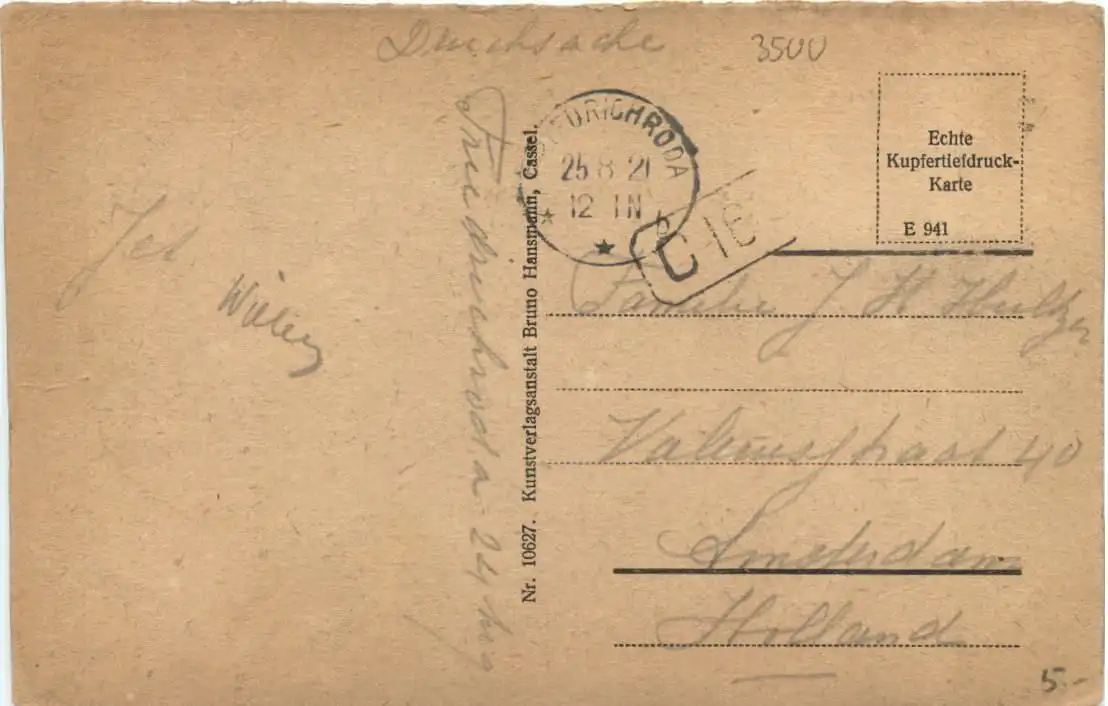 Drucksache
3500
FRIEDRICHRODA
25.8.21
12-1N
Echte
Kupfertiefdruck-
Karte
E 941
Jet
Friedrichroda 24
Nr. 10627. Kunstverlagsanstalt Bruno Hansmann, Cassel.
Familie J H Hultzer
40
Amsterdam
Holland
5.-